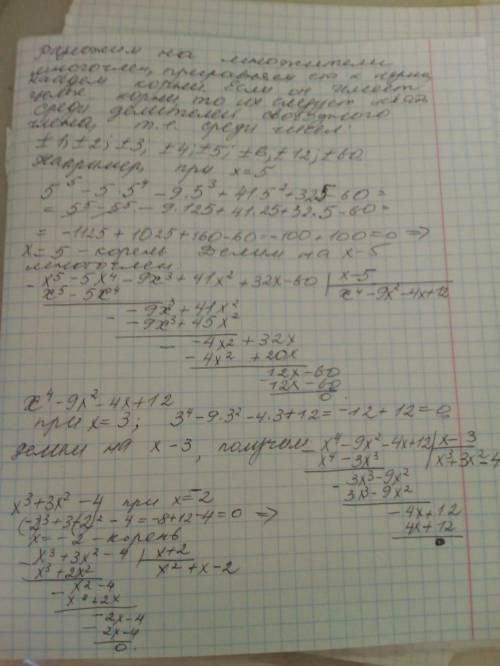 Разложим на множители
многочлен, приравняем его к нулю,
найдем корни. Если он имеет
целые корни то их следует искать
среди делителей свободного
члена, т.е. среди чисел:
±1; ±2; ±3; ±4; ±5; ±6, ±12; ±60
Например, при x=5
5⁵ - 5·5⁴ - 9·5³ + 41·5² + 32·5 - 60 =
= 5⁵ - 5⁵ - 9·125 + 41·25 + 32·5 - 60 =
= -1125 + 1025 + 160 - 60 = -100 + 100 = 0 ⇒
x = 5 - корень Делим на x-5
многочлен
- x⁵ - 5x⁴ - 9x³ + 41x² + 32x - 60 | x-5
x⁵ - 5x⁴ x⁴ - 9x² - 4x + 12
- -9x³ + 41x²
-9x³ + 45x²
- -4x² + 32x
-4x² + 20x
12x - 60
- 12x - 60
0
x⁴ - 9x² - 4x + 12
при x = 3; 3⁴ - 9·3² - 4·3 + 12 = -12 + 12 = 0
делим на x-3, получаем
- x⁴ - 9x² - 4x + 12 | x - 3
x⁴ - 3x³ x³ + 3x² - 4
- 3x³ - 9x²
3x³ - 9x²
- -4x + 12
4x + 12
0
x³ + 3x² - 4 при x = -2
(-2³ + 3·(-2)² - 4 = -8 + 12 - 4 = 0 ⇒
x = -2 - корень
- x³ + 3x² - 4 | x+2
x³ + 2x² x² + x - 2
- x² - 4
x² + 2x
- -2x - 4
- 2x - 4
0